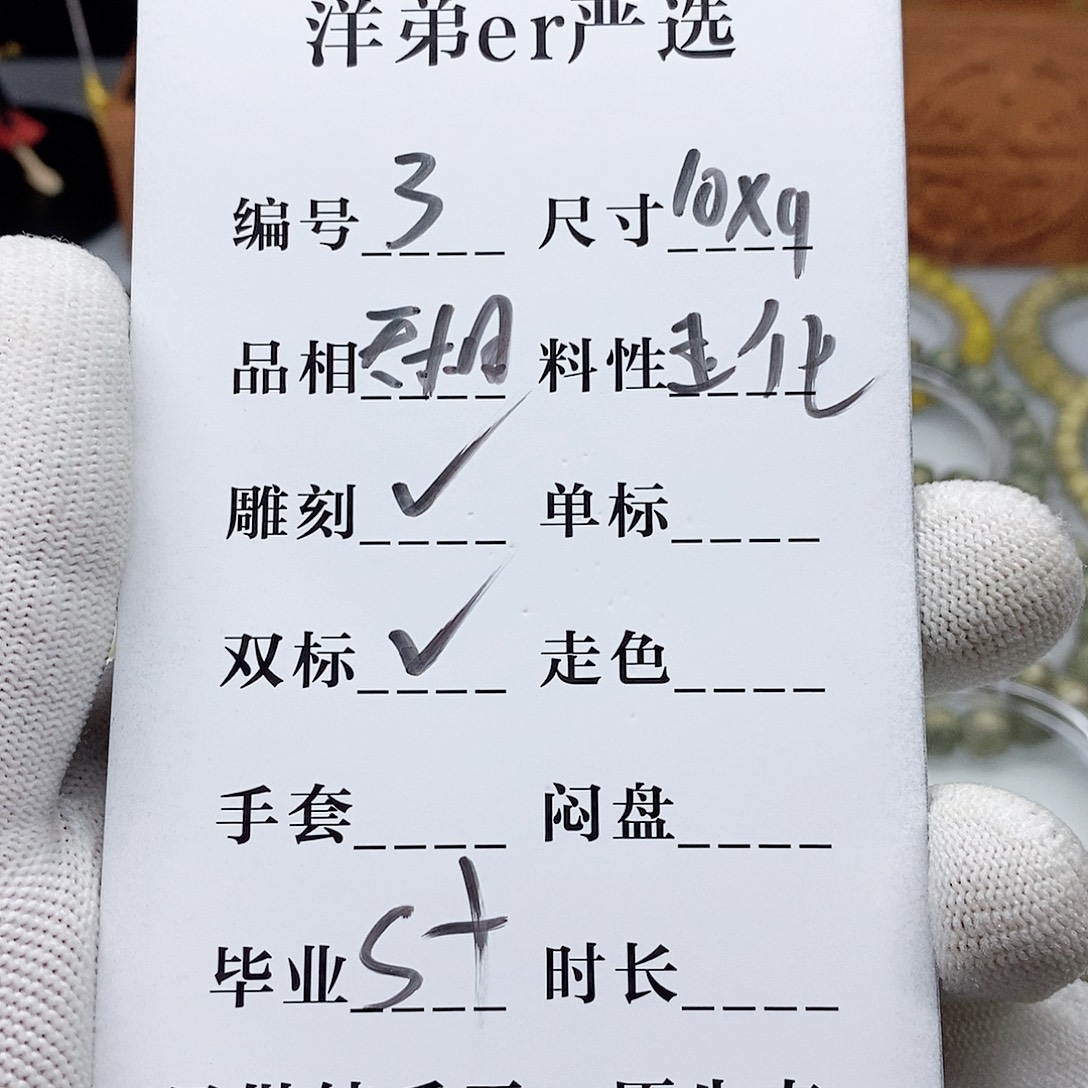 洋弟er严选
编号 3 尺寸 10x9
品相 料性 玉化
雕刻 ✓ 单标
双标 ✓ 走色
手套 闷盘
毕业 S+ 时长